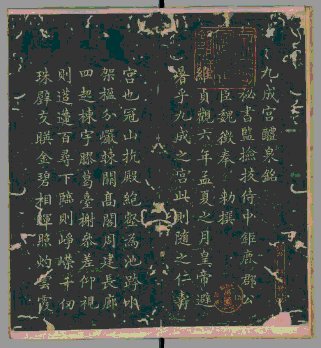 九成宮醴泉銘
秘書監撿挍侍中鉅鹿郡公
臣魏徵奉 勑撰
維貞觀六年孟夏之月皇帝避
暑乎九成之宮此則隨之仁壽
宮也冠山抗殿絕壑為池跨水
架楹分巖竦闕高閣周建長廊
四起棟宇膠葛臺榭參差仰視
則迢遰百尋下臨則崢嶸千仞
珠壁交暎金碧相暉照灼雲霞